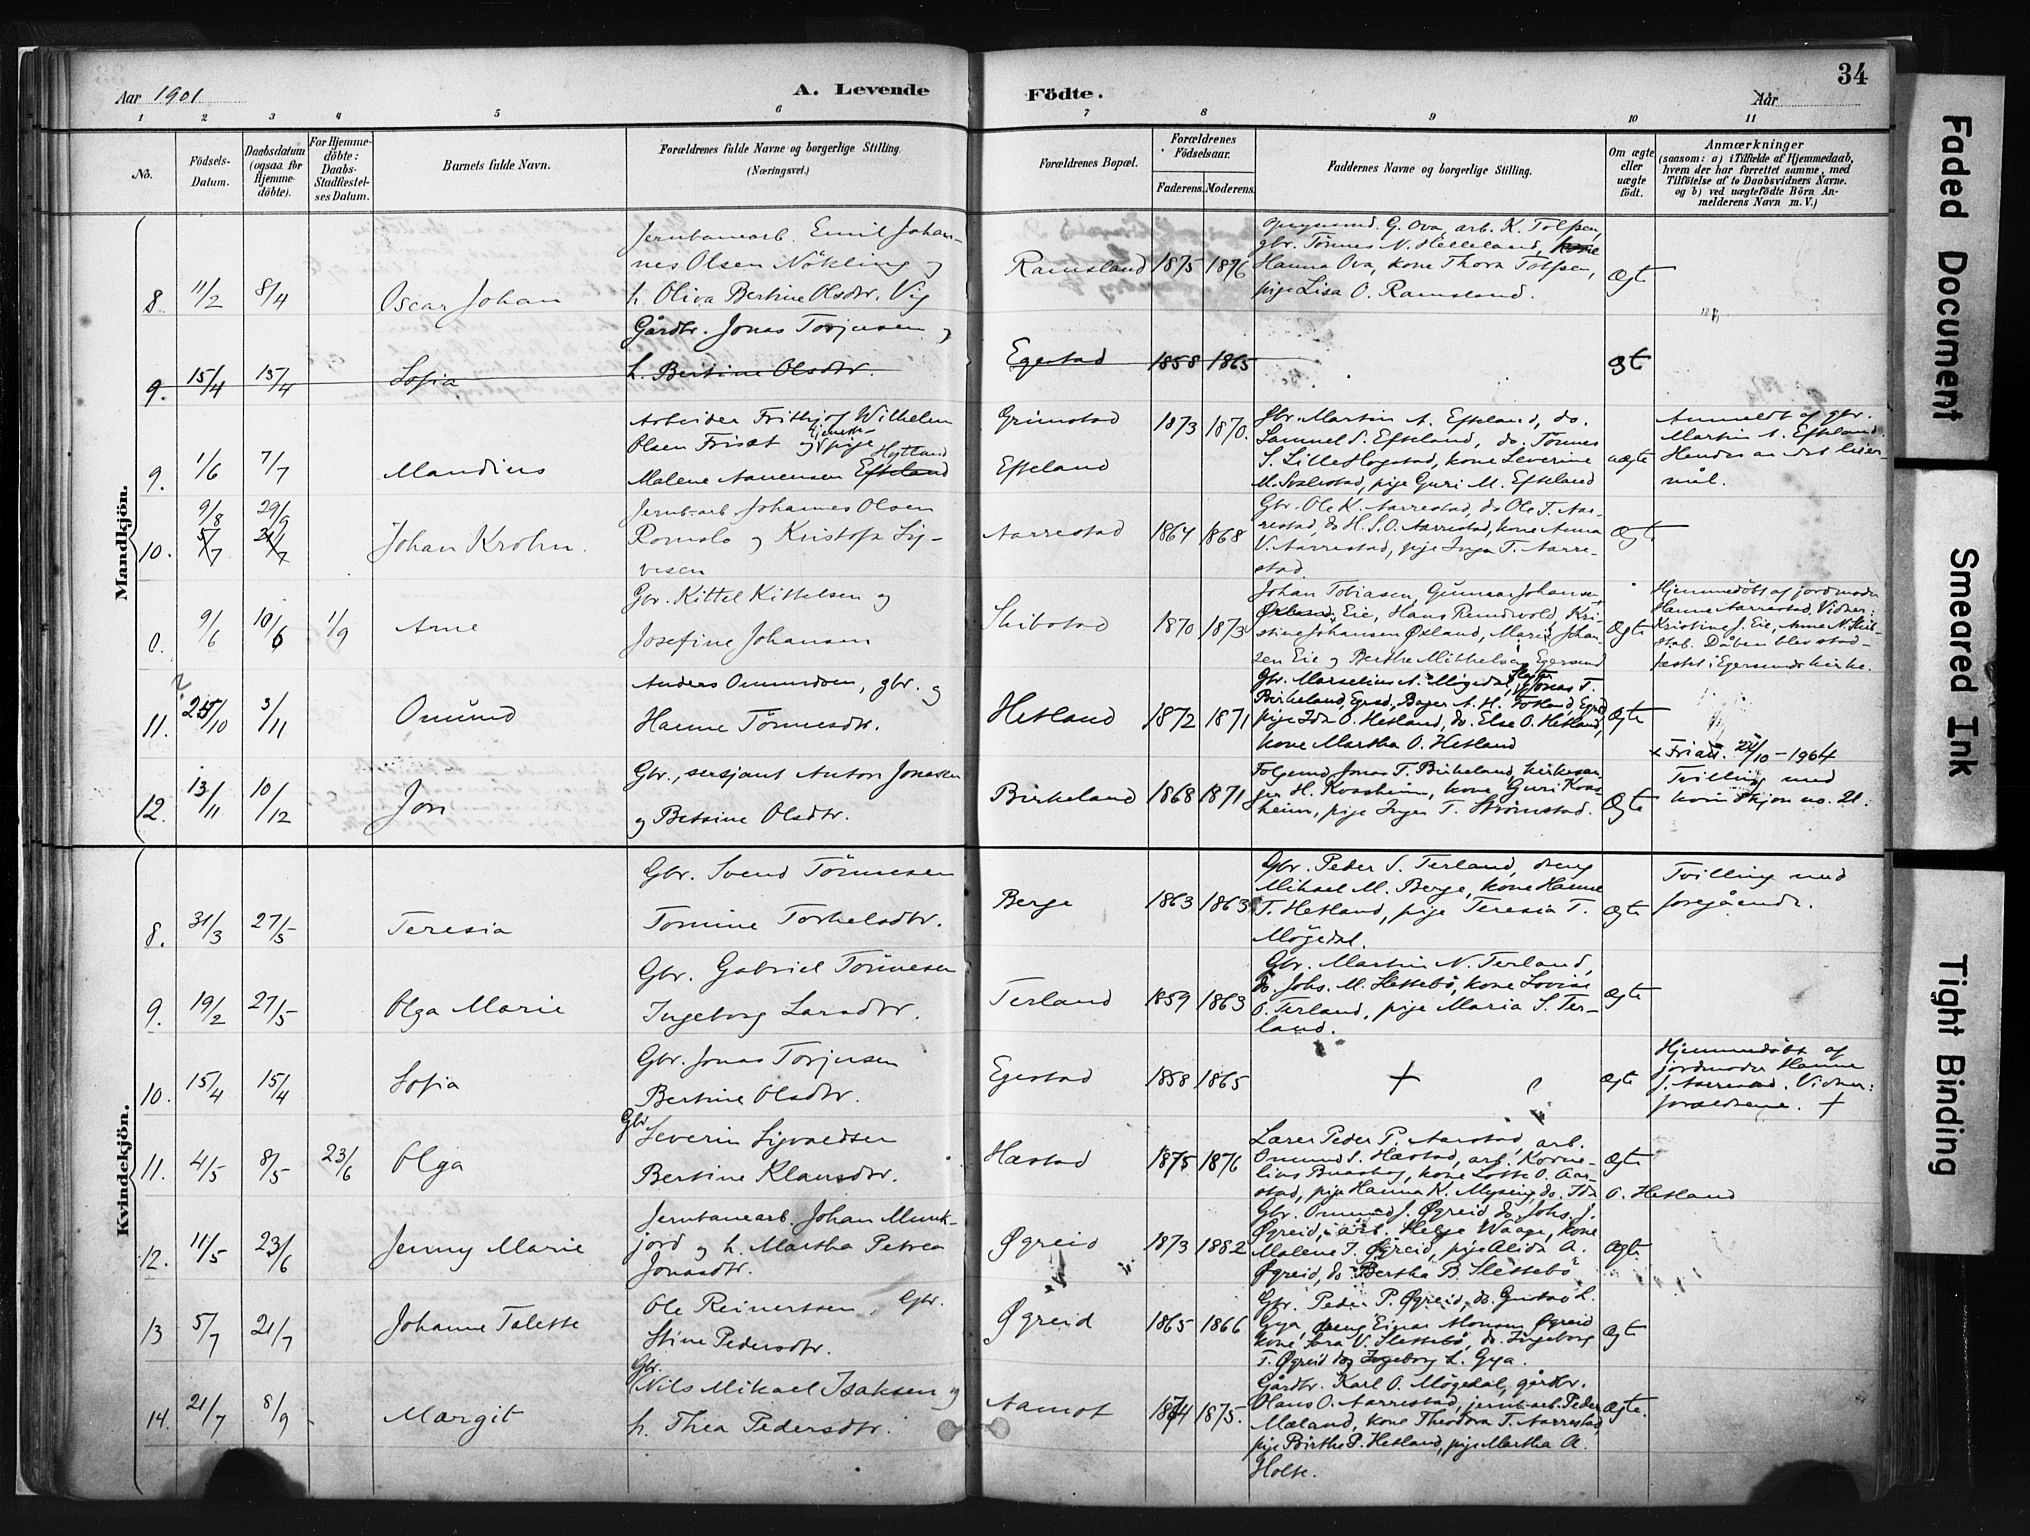 Aar 1901
A. Levende
Födte.
Aar
34
1 2 3 4 5 6 7 8 9 10 11
No.
Födsels-
Datum.
Daabsdatum
(ogsaa for
Hjemme-
döbte).
For Hjemme-
döbte:
Daabs-
Stadfestel-
ses Datum.
Barnets fulde Navn.
Forældrenes fulde Navne og borgerlige Stilling.
(Næringsvei.)
Forældrenes Bopæl.
Forældrenes
Födselsaar.
Faderens.
Moderens.
Faddernes Navne og borgerlige Stilling.
Om ægte
eller
uægte
födt.
Anmærkninger
(saasom: a) i Tilfælde af Hjemmedaab,
hvem der har forrettet samme, med
Tilföielse af to Daabsvidners Navne.
og b) ved uægtefödte Börn An-
melderens Navn m. V.)
Mandkjön.
8 11/2 8/4 Oscar Johan
Jernbanearb. Emil Johan-
nes Olsen Nökling og
h. Oliva Bertine Olsdtr. Vig
Ramsland 1875 1876
G. Ova, arb. K. Tolfsen,
gbr. Tönnes N. Helleland, kone
Hanna Ova, kone Thora Tolfsen,
pige Lisa O. Ramsland.
Ægte
9. 15/4 15/4 Sofia
Gårdbr. Jonas Torjusen og
h. Bertine Olsdtr.
Egestad 1858 1865
9. 1/6 7/7 Mandius
Arbeider Frithjof Wilhelm
Olsen Frisæt og pige
Malene Aanensen Efteland
Hytland
Grimstad 1873 1870.
Efteland
Gbr. Martin A. Efteland, do.
Samuel S. Efteland, do. Tönnes
S. Lille Hogstad, kone Severine
M. Svalestad, pige Guri M. Efteland
uægte
Anmeldt af gbr.
Martin A. Efteland.
Hendes 2det leier-
mål.
10. 9/8 29/9 5/7 21/7 Johan Krohn.
Jernb.arb Johannes Olsen
Romslo og Kristofa Sig-
vesen
Aarrestad 1864 1868
Gbr. Ole K. Aarrestad, do Ole T. Aar-
restad, do H. S. O. Aarrestad, kone Anna
V. Aarrestad, pige Inga T. Aarre-
stad
Ægte
0. 9/6 10/6 1/9 Arne
Gbr. Kittel Kittelsen og
Josefine Johansen
Skibstad 1870 1873
Johan Tobiasen, Gunnar Johansen,
Øxland, Eie, Hans Rundvold, Kri-
stine Johansen Øxland, Marie Johan-
sen Eie og Berthe Mikkelsen Egersund
Ægte
Hjemmedöbt af jordmoder
Hanne Aarrestad. Vidner:
Kristine J. Eie, Anne N. Skib-
stad. Dåben blev stad-
fæstet i Egersunds kirke.
11. 25/10 3/11 Omund
Anders Omundsen, gbr. og
Hanne Tönnesdtr.
Hetland 1872 1871
Gbr. Marselius A. Mögedal, Jonas T.
Birkeland,
pige Ida O. Hetland, do. Else O. Hetland,
kone Martha O. Hetland
Ægte
12. 13/11 10/12 Jon
Gbr., sersjant Anton Jonassen
og Betsine Olsdtr.
Birkeland 1868 1871
Jonas T. Birkeland, kirkesan-
ger H. Kossheim, kone Guri Koss-
heim, pige Inger T. Strömstad.
Ægte
10 - 1964
Tvilling med
kvindkjön no. 21.
Kvindekjön.
8. 31/3 27/5 Teresia
Gbr. Svend Tönnesen
Tomine Torkelsdtr.
Berge 1863 1863
Gbr. Peder S. Terland, dreng
Mikael M. Berge, kone Hanne
T. Hetland, pige Teresia T.
Mögedal.
Ægte
Tvilling med
foregående.
9. 19/2 27/5 Olga Marie
Gbr. Gabriel Tönnesen
Ingeborg Larsdtr.
Terland 1859 1863
Gbr. Martin N. Terland,
do. Johs. M. Slettebö, kone Lovise
O. Terland, pige Maria S. Ter-
land.
Ægte
10. 15/4 15/4 Sofia
Gbr. Jonas Torjusen
Bertine Olsdtr.
Egestad 1858 1865
+
Ægte
Hjemmedöbt af
jordmoder Hanne
J. Aarrestad. Vidner:
forældrene. +
11. 4/5 8/5 23/6 Olga
Gbr Severin Sigvaldsen
Bertine Klausdtr.
Hæstad 1875 1876
Lærer Peder P. Aarstad, arb.
Omund S. Hæstad, arb. Korne-
lius Buashog, kone Lotte O. Aar-
stad, pige Hanna K. Mysing, do. Ida
O. Hetland
Ægte
12. 11/5 23/6 Jenny Marie
Jernbanearb. Johan Munk-
jord og h. Martha Petrea
Jonasdtr.
Øgreid 1873 1882
Gbr. Omund J. Øgreid do. Johs. J.
Øgreid, arb. Helge Waage, kone
Malene T. Øgreid, pige Alida A.
Øgreid, do Bertha B. Slettebö
Ægte
13 5/7 21/7 Johanne Talette
Ole Reinertsen, Gbr.
Stine Pedersdtr.
Øgreid 1865 1866
Gbr. Peder P. Øgreid, do. Gustav L.
Gya, dreng Einar Monsen Øgreid
kone Sara V. Slettebö, do. Ingeborg
T. Øgreid og Ingeborg L. Gya.
Ægte
14. 21/7 8/9 Margit
Gbr. Nils Mikael Isaksen og
h. Thea Pedersdtr.
Aamot 1874 1875.
Gårdbr. Karl O. Mögedal, gårdbr.
Olaus O. Aarrestad, jernb.arb. Peder
Mæland, kone Theodora T. Aarrestad,
pige Birthe P. Hetland, pige Martha A.
Holte.
Ægte.
Faded Document
Smeared Ink
Tight Binding